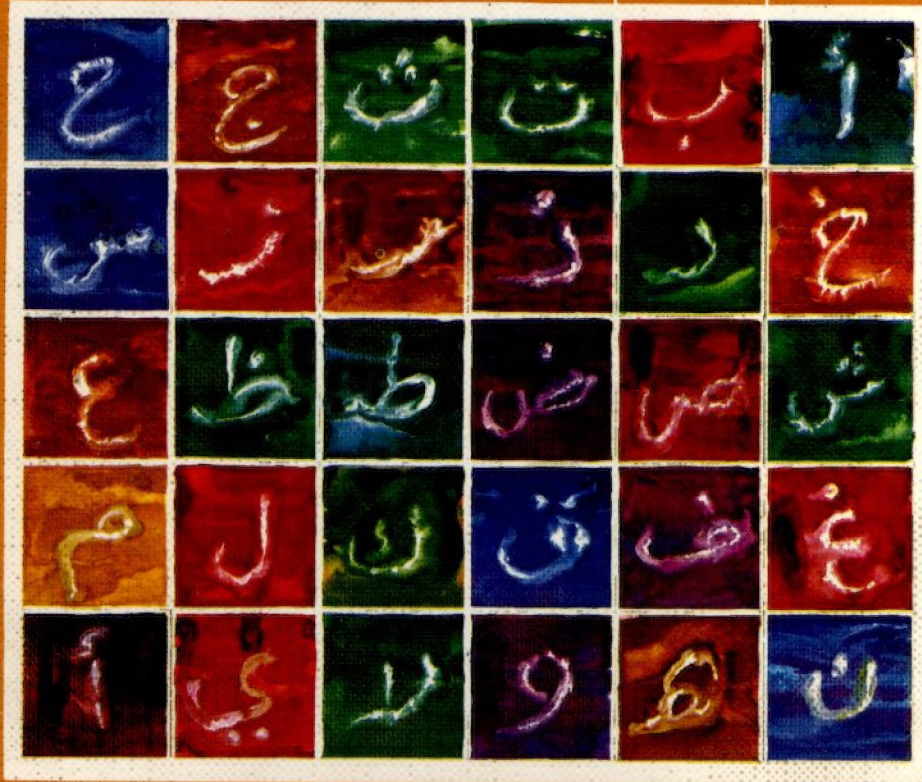 أ ب ت ث ج ح
خ د ذ ر ز س
ش ص ض ط ظ ع
غ ف ق ك ل م
ن ه و لا ي أ